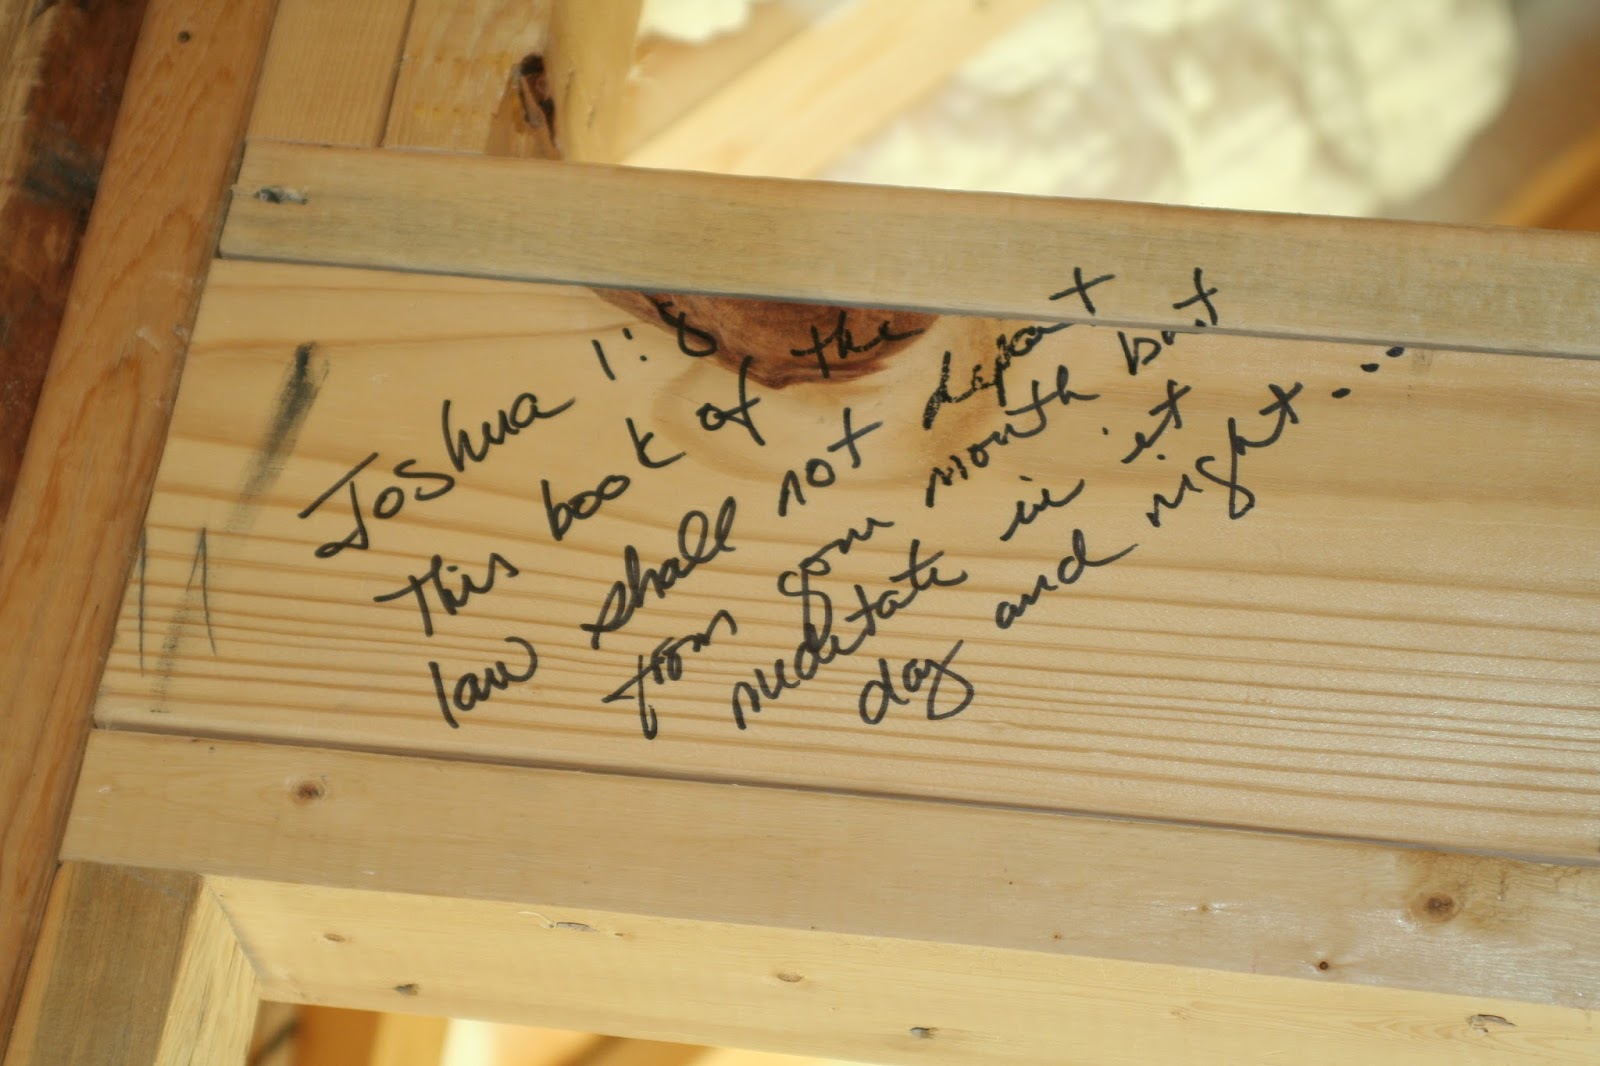 Joshua 1:8
This book of the
law shall not depart
from your mouth but
meditate in it
day and night...